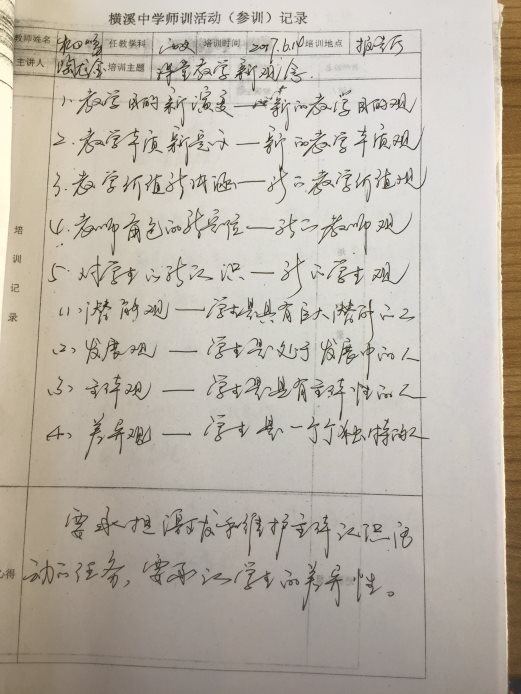 横溪中学师训活动（参训）记录
教师姓名 任教学科 培训时间 2017.6.14 培训地点 报告厅
主讲人 培训主题 课堂教学新观念.
1. 教学目的新演变—新的教学目的观
2. 教学本质新意示—新的教学本质观
3. 教学价值新—新的教学价值观
4. 教师角色的新定位—新的教师观
5. 对学生的新认识—新的学生观
(1) 潜能观—学生是具有巨大潜能的人
(2) 发展观—学生是处于发展中的人
(3) 主体观—学生是具有主体性的人
(4) 差异观—学生是一个个独特的人
培训记录
要承担激发和维护主体认识活
动的任务，要承认学生的差异性。
心得